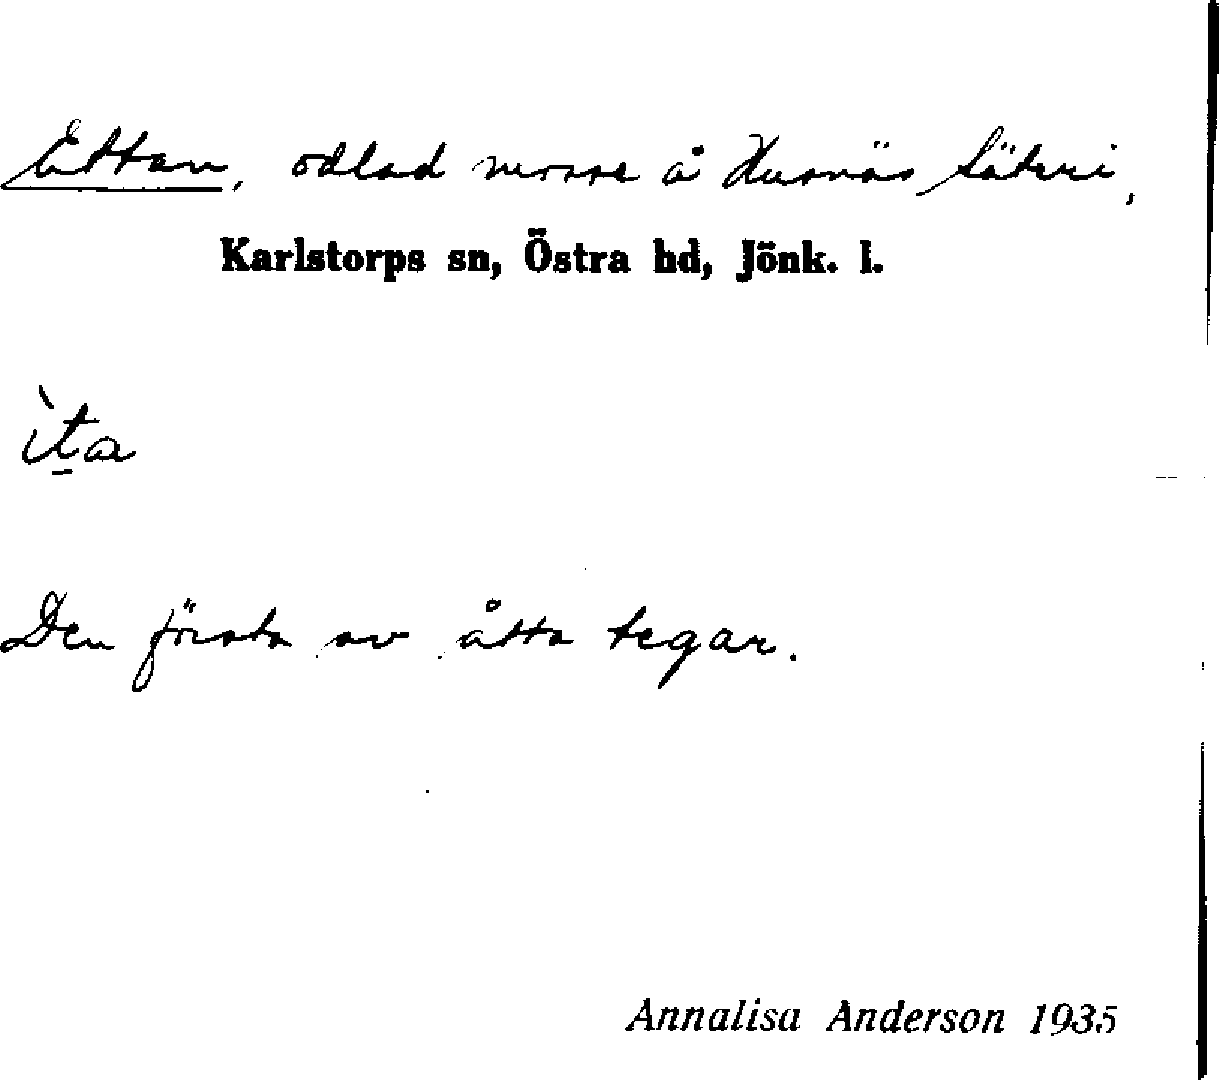 Ettan, odlad mosse å Husnäs Säteri,
Karlstorps sn, Östra hd, Jönk. l.
ìta
Den första av åtta tegar.
Annalisa Anderson 1935